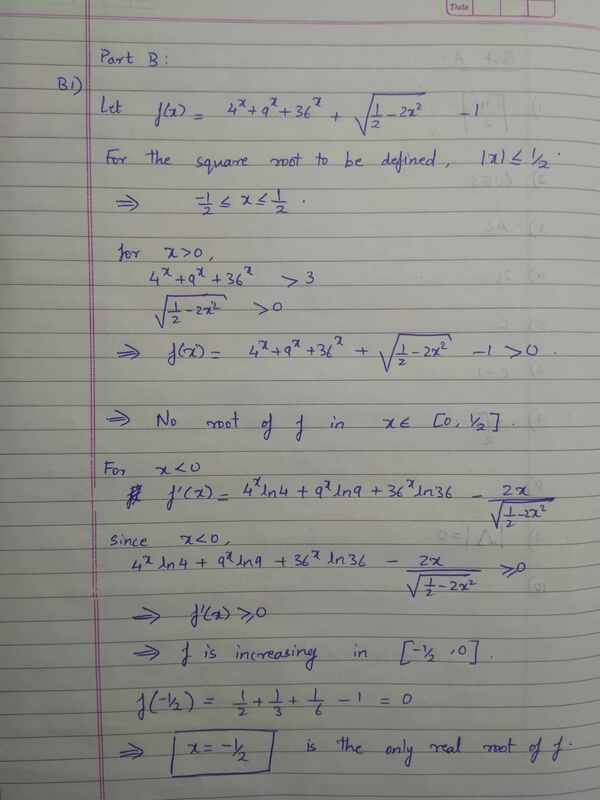 Date
Part B:
B1)
Let f(x) = 4^x + 9^x + 36^x + √(1/2 - 2x²) - 1
For the square root to be defined, |x| ≤ 1/2.
⇒ -1/2 ≤ x ≤ 1/2.
for x>0,
4^x + 9^x + 36^x > 3
√(1/2 - 2x²) >0
⇒ f(x) = 4^x + 9^x + 36^x + √(1/2 - 2x²) - 1 >0.
⇒ No root of f in x∈ [0, 1/2].
For x<0
f'(x) = 4^x ln4 + 9^x ln9 + 36^x ln36 - 2x/√(1/2 - 2x²)
since x<0,
4^x ln4 + 9^x ln9 + 36^x ln36 - 2x/√(1/2 - 2x²) ≥0
⇒ f'(x) ≥0
⇒ f is increasing in [-1/2, 0].
f(-1/2) = 1/2 + 1/3 + 1/6 - 1 = 0
⇒ x = -1/2 is the only real root of f.